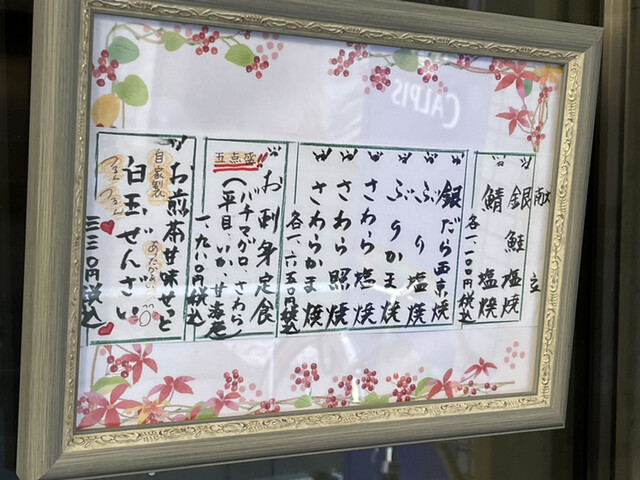 銀鮭塩焼
鯖塩焼
各一、一〇〇円税込
銀だら西京焼
ぶり塩焼
ぶりかま焼
さわら塩焼
さわら照焼
さわらかま焼
各一、六五〇円税込
お刺身定食
五点盛!!
(本マグロ、さわら
平目、いか、甘海老
一、九八〇円税込
お煎茶甘味せっと
自家製
白玉ぜんざい
つるん つるん
あったか〜い
三三〇円税込
CALPIS